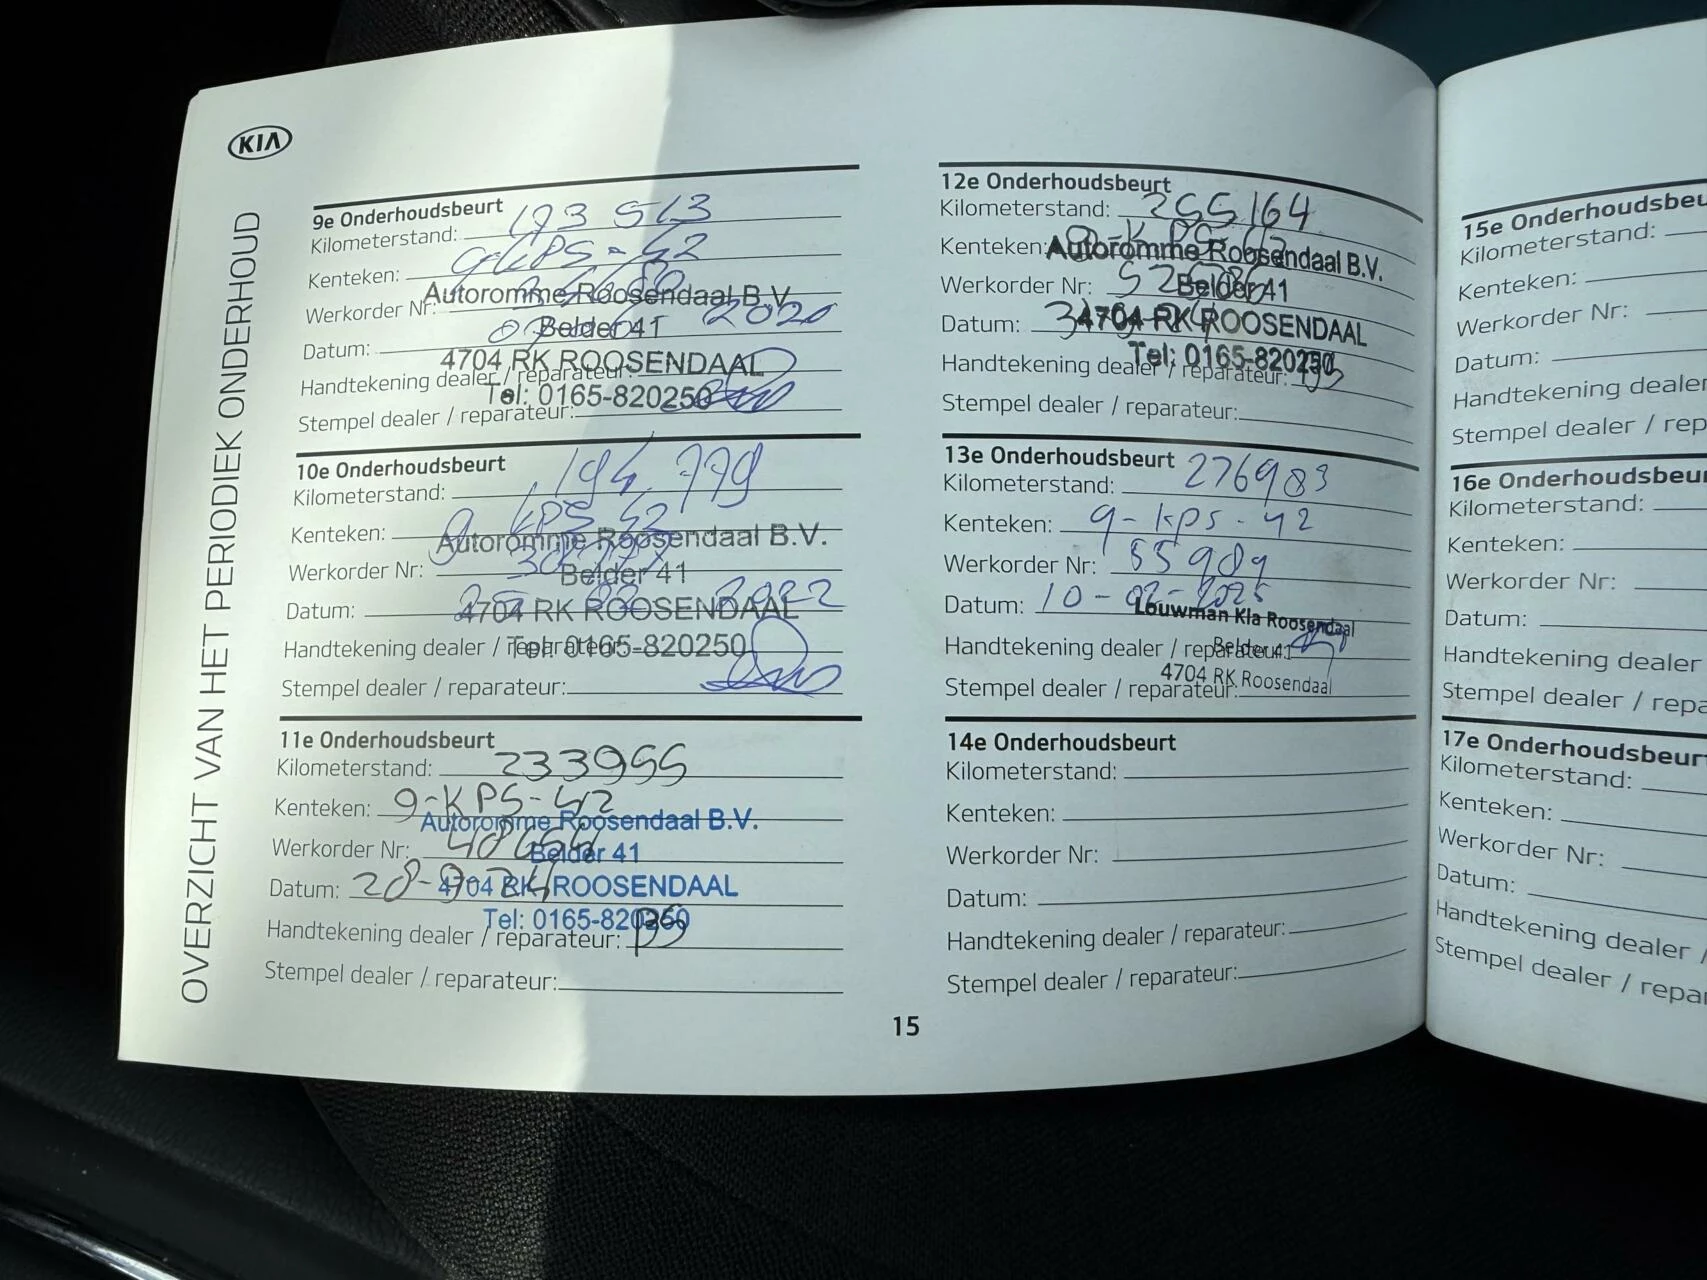 KIA
OVERZICHT VAN HET PERIODIEK ONDERHOUD
9e Onderhoudsbeurt
Kilometerstand: 173 513
Kenteken: 9-KPS-42
Autoromme Roosendaal B.V.
Werkorder Nr:
Belder 41
Datum: 2020
4704 RK ROOSENDAAL
Handtekening dealer / reparateur:
Tel: 0165-820250
Stempel dealer / reparateur:
10e Onderhoudsbeurt
Kilometerstand: 194.779
Kenteken: 9 KPS 42
Autoromme Roosendaal B.V.
Werkorder Nr:
Belder 41
Datum: 2022
4704 RK ROOSENDAAL
Handtekening dealer / reparateur:
Tel: 0165-820250
Stempel dealer / reparateur:
11e Onderhoudsbeurt
Kilometerstand: 233955
Kenteken: 9-KPS-42
Autoromme Roosendaal B.V.
Werkorder Nr:
Belder 41
Datum:
4704 RK ROOSENDAAL
Tel: 0165-820250
Handtekening dealer / reparateur:
Stempel dealer / reparateur:
12e Onderhoudsbeurt
Kilometerstand: 255164
Kenteken:
Autoromme Roosendaal B.V.
Werkorder Nr:
Belder 41
Datum:
4704 RK ROOSENDAAL
Tel: 0165-820250
Handtekening dealer / reparateur:
Stempel dealer / reparateur:
13e Onderhoudsbeurt
Kilometerstand: 276983
Kenteken: 9-kps-42
Werkorder Nr: 55989
Datum: 10-02-2025
Louwman Kia Roosendaal
Handtekening dealer / reparateur:
Belder 41
4704 RK Roosendaal
Stempel dealer / reparateur:
14e Onderhoudsbeurt
Kilometerstand:
Kenteken:
Werkorder Nr:
Datum:
Handtekening dealer / reparateur:
Stempel dealer / reparateur:
15
15e Onderhoudsbeu
Kilometerstand:
Kenteken:
Werkorder Nr:
Datum:
Handtekening dealer
Stempel dealer / rep
16e Onderhoudsbeur
Kilometerstand:
Kenteken:
Werkorder Nr:
Datum:
Handtekening dealer
Stempel dealer / repa
17e Onderhoudsbeur
Kilometerstand:
Kenteken:
Werkorder Nr:
Datum:
Handtekening dealer /
Stempel dealer / repa